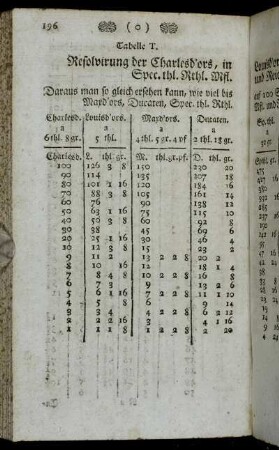 196 ( o )
Tabelle T.
Resolvirung der Charlesd'ors, in
Spec. thl. Rthl. Mfl.
Daraus man so gleich ersehen kann, wie viel bis
Mayd'ors, Ducaten, Spec. thl. Rthl.
Charlesd. Louisd'ors. Mayd'ors. Ducaten.
a a a a
6 thl. 8 gr. 5 thl. 4 thl. 5 gr. 4 pf 2 thl. 18 gr.
Charlesd. L. thl. gr. M. thl. gr. pf. D. thl. gr.
100 126 3 8 150 230 20
90 114 135 207 18
80 101 1 16 120 184 16
70 88 3 8 105 161 14
60 76 90 138 12
50 63 1 16 75 115 10
40 50 3 8 60 92 8
30 38 45 69 6
20 25 1 16 30 46 4
10 12 3 8 15 23 2
9 11 2 13 2 2 8 20 2
8 10 16 12 18 1 4
7 8 4 8 10 2 2 8 16 8
6 7 3 9 13 2 12
5 6 1 16 7 2 2 8 11 1 10
4 5 8 6 9 14
3 3 4 4 2 2 8 6 2 12
2 2 2 16 3 4 1 16
1 1 1 8 1 2 2 8 2 20